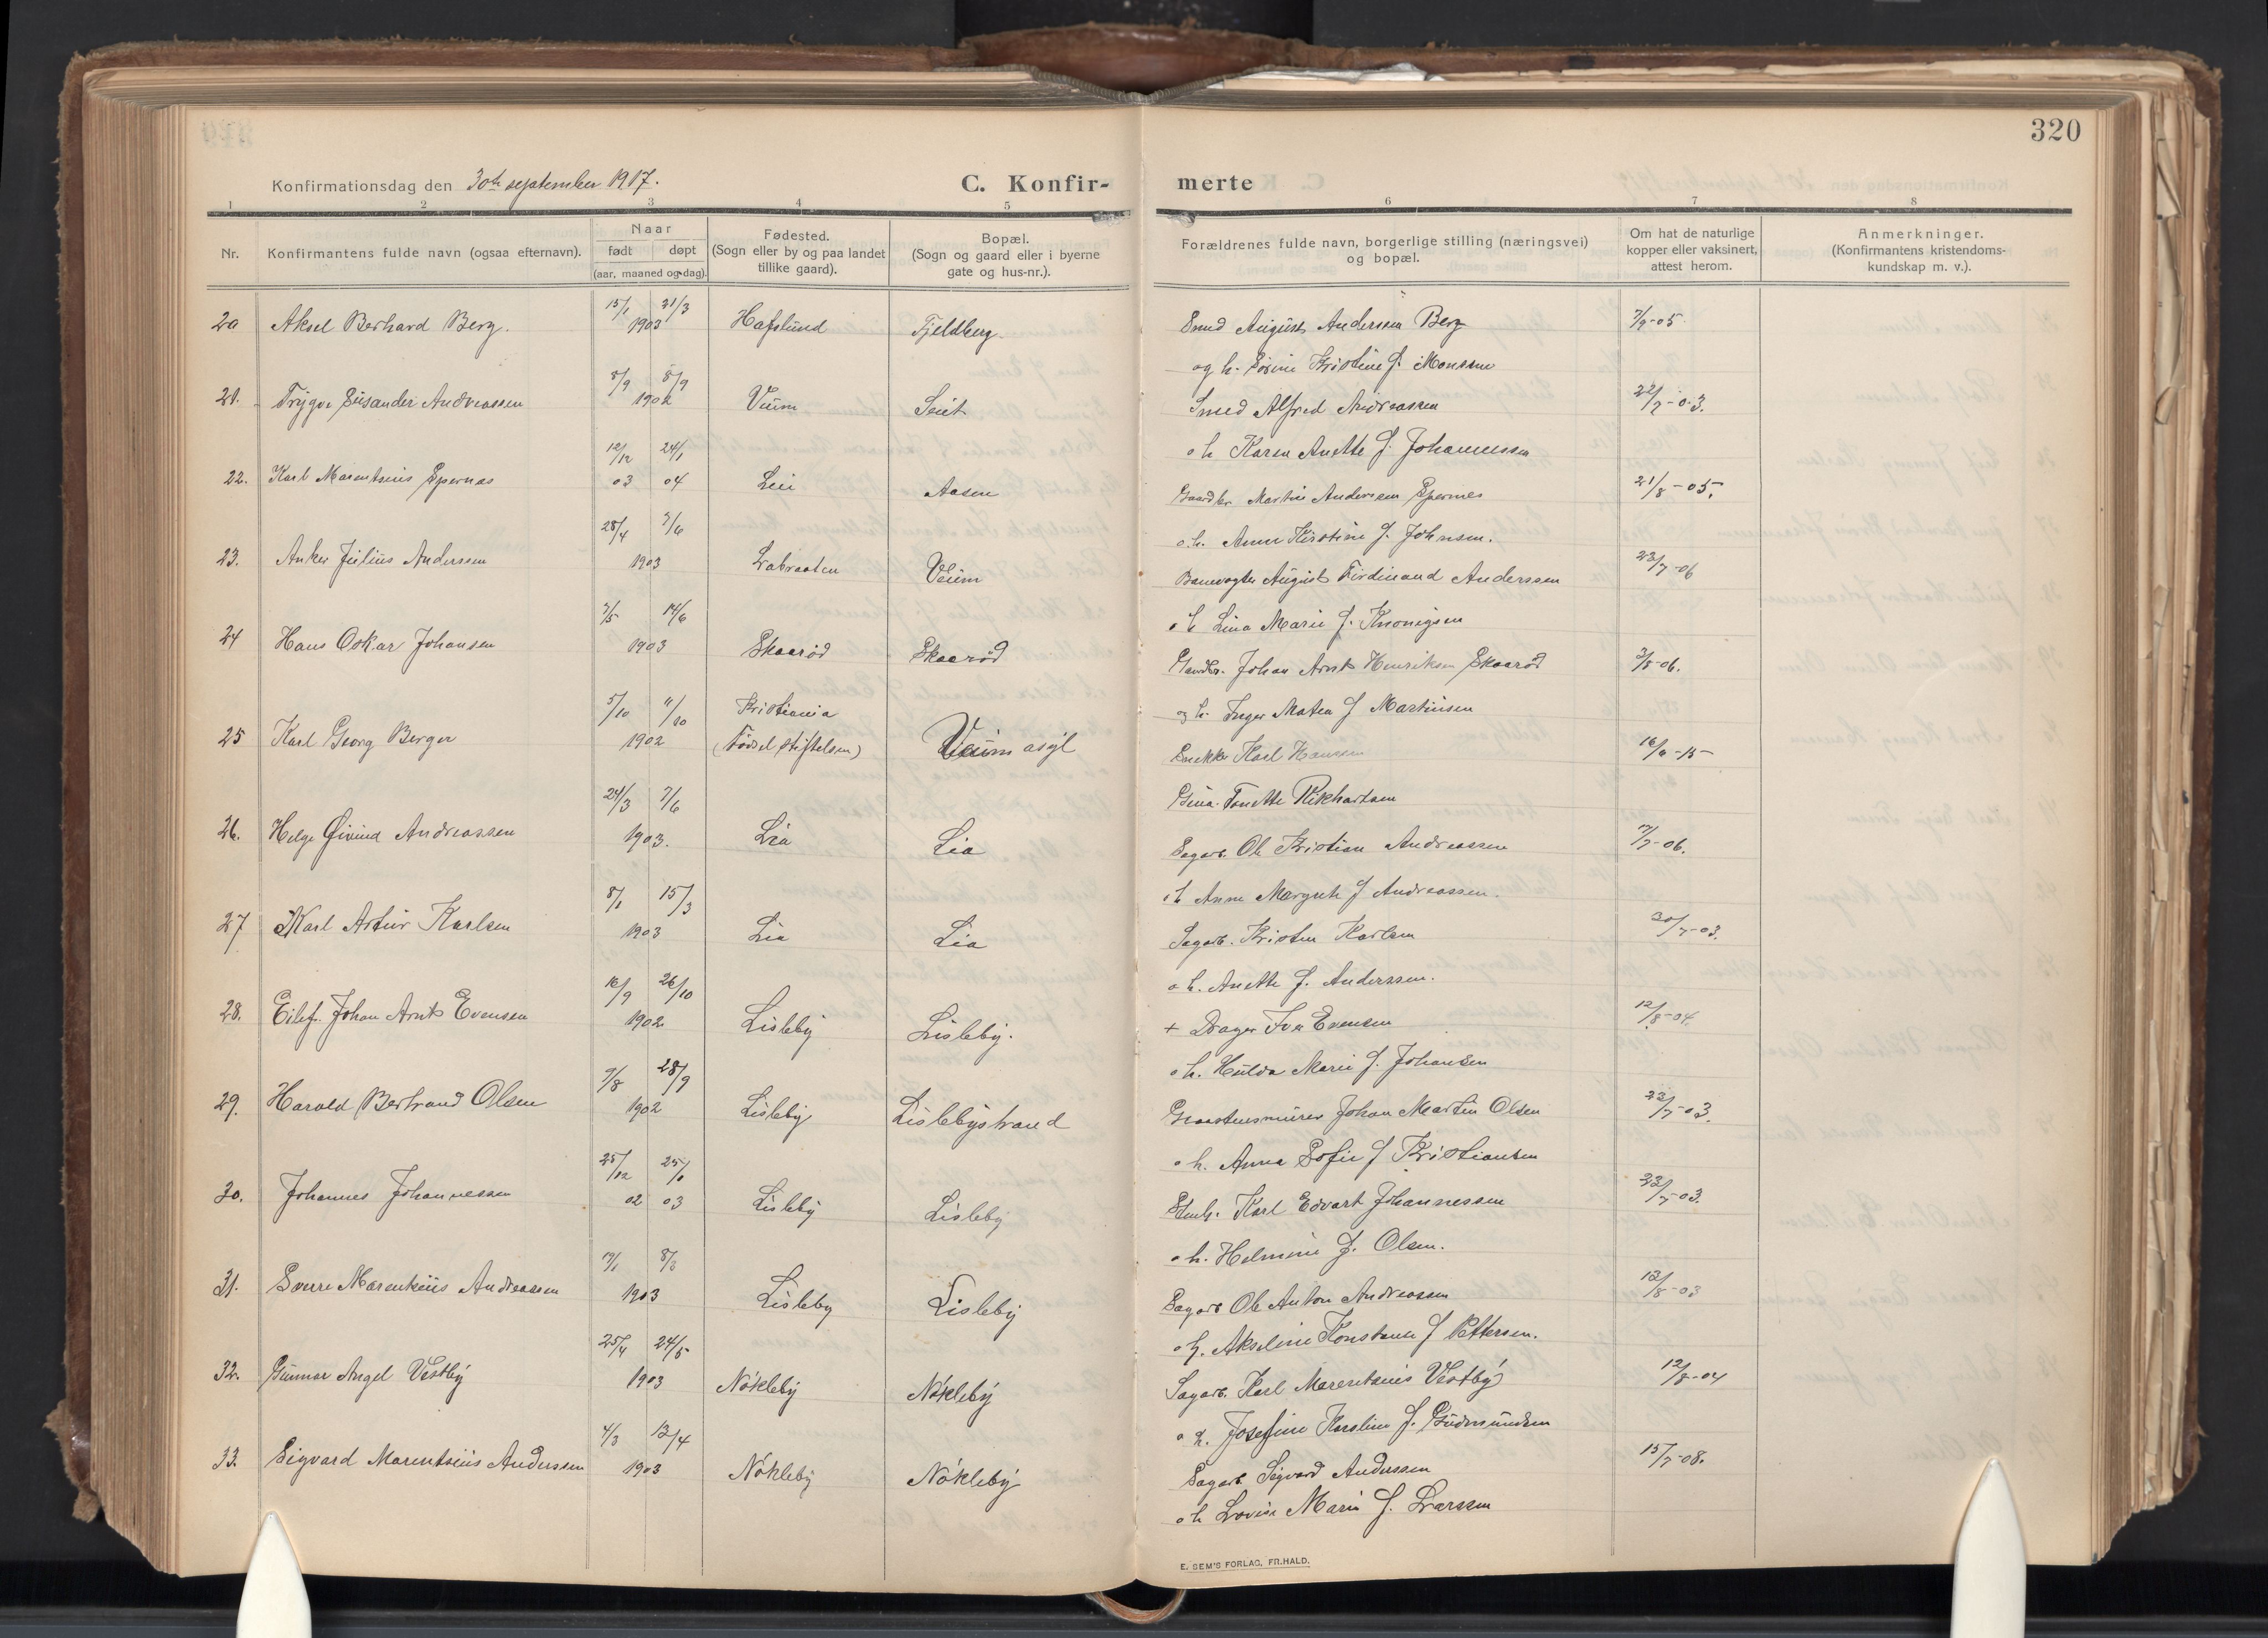 320
Konfirmationsdag den 30te september 1917.
C. Konfir-
merte
1 2 3 4 5 6 7 8
Nr.
Konfirmantens fulde navn (ogsaa efternavn).
Naar
født døpt
(aar, maaned og dag).
Fødested.
(Sogn eller by og paa landet
tillike gaard).
Bopæl.
(Sogn og gaard eller i byerne
gate og hus-nr.).
Forældrenes fulde navn, borgerlige stilling (næringsvei)
og bopæl.
Om hat de naturlige
kopper eller vaksinert,
attest herom.
Anmerkninger.
(Konfirmantens kristendoms-
kundskap m. v.).
15/1 31/3
20 Aksel Berhard Berg. 1903 Hafslund Fjeldberg. Smed August Anderssen Berg 7/9-05.
og h. Josine Kristine f. Monssen
8/9
21. Trygve Lusander Andreassen 1902 Veum Smed Alfred Andreassen
o h Karen Anette f. Johannessen
12/12 24/1
22. Karl Marentsius Spernes 03 04 Lie Aasen Gaardbr. Martin Anderssen Spernes 21/8-05.
o. h. Anne Kirstine f. Johnsen.
28/4 7/6
23. Anker Julius Anderssen 1903 Labraaten Veum Banevogter August Ferdinand Anderssen 23/7-06
o h Lina Marie f.
3/5 14/6
24 Hans Oskar Johansen 1903 Skaarød Skaarød Gaardbr. Johan Arnt Henriksen Skaarød 3/8-06.
og h. Inger Matea f Martinsen
5/10 Kristiania
25 Karl Georg Berger 1902 (Fødselstiftelsen) Veum asyl Snekker Karl Hanssen
Gina Tonette Rikhartsen
24/3 7/6
26. Helge Øivind Andreassen 1903. Lia Lia Sagarb. Ole Kristian Andreassen 7/7-06.
o h Anne Margrete f Andreassen.
8/1 15/3
27 Karl Artur Karlsen 1903 Lia Lia Sagarb. Kristen Karlsen 30/7-03.
o h. Anette f. Anderssen.
16/9 26/10
28. Eilef Johan Arnt Evensen 1902. Lisleby Lisleby. + Drager Iver Evensen 12/8-04.
o h. Hulda Marie f. Johansen
9/8 28/9
29. Harald Bertrand Olsen 1902 Lisleby Lislebystrand Graastensmurer Johan Martin Olsen 23/7-03.
o h. Anna Sofie f Kristiansen
25/12 25/1
30. Johannes Johannessen 02 03 Lisleby Lisleby Karl Edvart Johannessen 23/7-03.
o h. Helmine f. Olsen.
8/3
31. Sverre Marentsius Andreassen 1903 Lisleby Lisleby Sagarb Ole Anton Andreassen 13/8-03
o h. Akseline Konstanse f Pettersen.
25/4 24/5
32. Gunnar Angel Vestby 1903 Nøkleby Nøkleby Sagarb. Karl Marentsius Vestby 12/8-04
o h. Josefine Karoline f. Gudmundsen
4/3 13/4
33. Sigvard Marentsius Anderssen 1903 Nøkleby Nøkleby Sagarb. Sigvard Anderssen 15/7-08.
o h Lovise Marie f. Larssen
E. SEM'S FORLAG, FR.HALD.